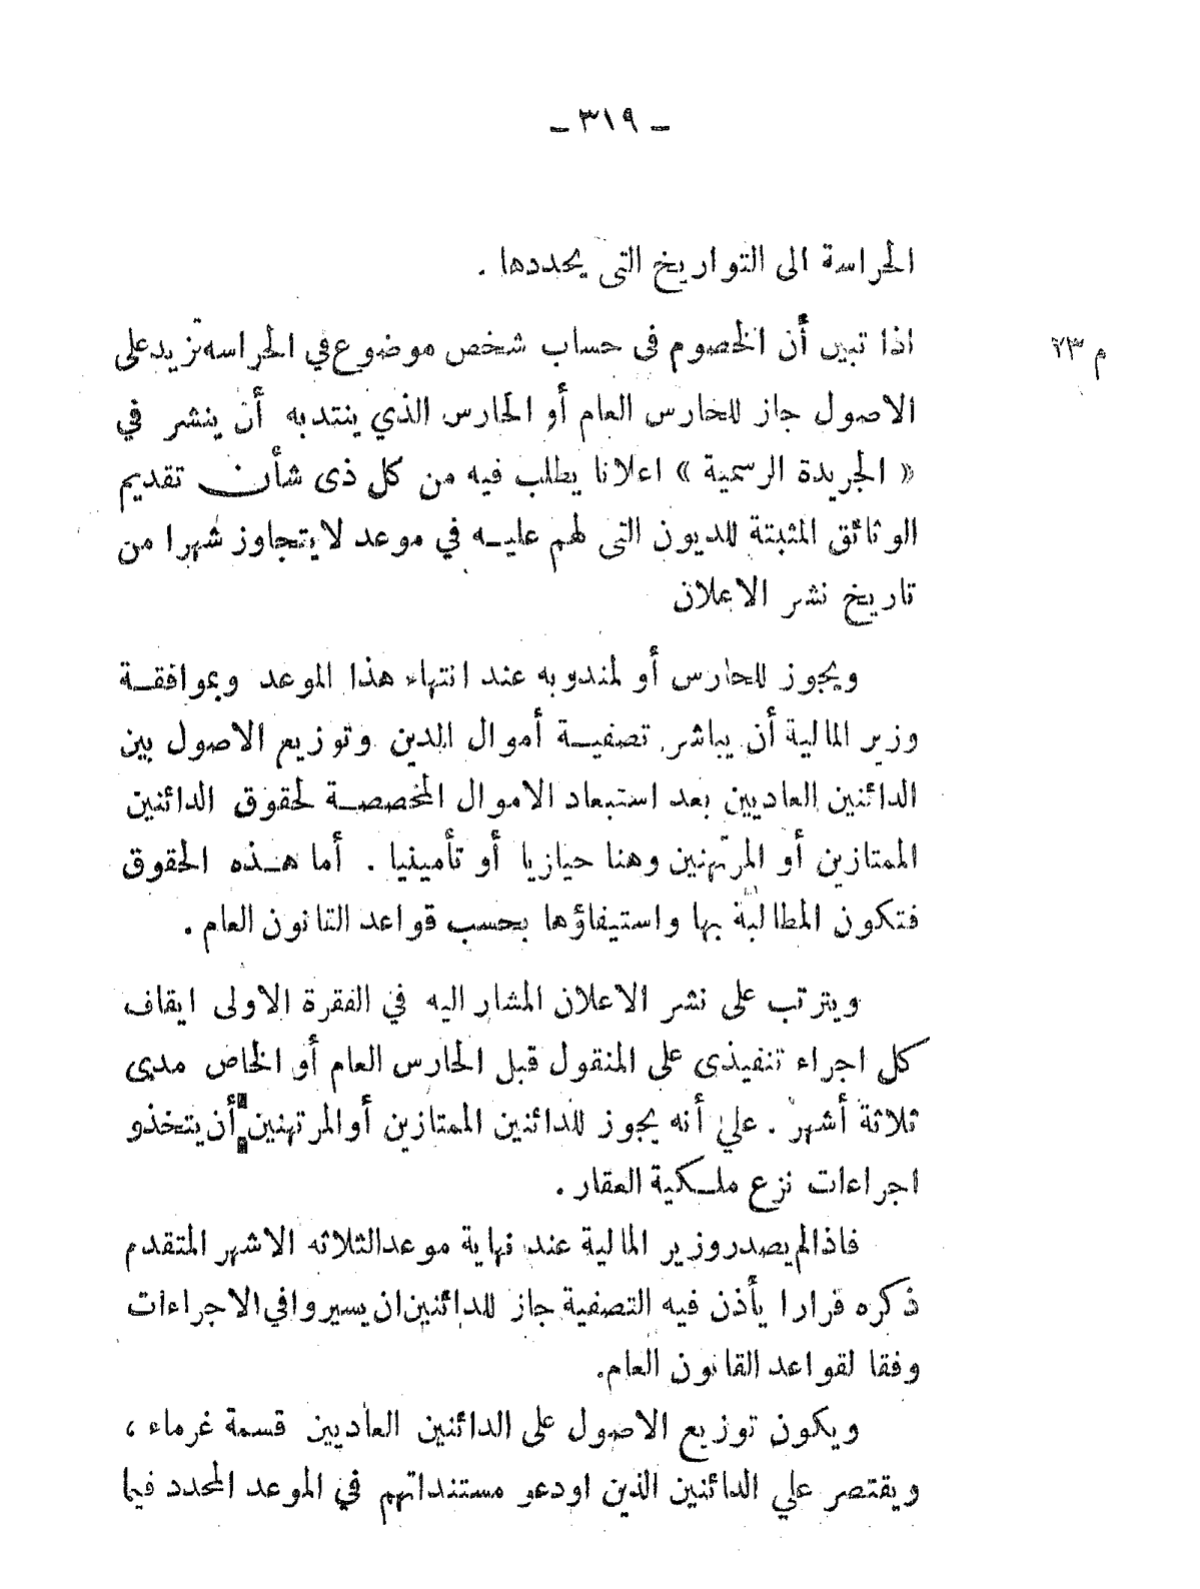 ـ ٣١٩ ـ
الحراسة الى التواريخ التى يحددها .
م ٢٣
اذا تبين أن الخصوم فى حساب شخص موضوع في الحراسه تزيد على
الاصول جاز للحارس العام أو الحارس الذي ينتدبه أن ينشر في
« الجريدة الرسمية » اعلانا يطلب فيه من كل ذى شأن تقديم
الوثائق المثبتة للديون التى لهم عليـه في موعد لا يتجاوز شهرا من
تاريخ نشر الاعلان
ويجوز للحارس أو لمندوبه عند انتهاء هذا الموعد وبموافقـة
وزير المالية أن يباشر تصفيـة أموال المدين وتوزيع الاصول بين
الدائنين العاديين بعد استبعاد الاموال المخصصـة لحقوق الدائنين
الممتازين أو المرتهنين وهنا حيازيا أو تأمينيا . أما هـذه الحقوق
فتكون المطالبة بها واستيفاؤها بحسب قواعد القانون العام .
ويترتب على نشر الاعلان المشار اليه في الفقرة الاولى ايقاف
كل اجراء تنفيذى على المنقول قبل الحارس العام أو الخاص مدى
ثلاثة أشهر . علي أنه يجوز للدائنين الممتازين أو المرتهنين أن يتخذو
اجراءات نزع ملـكية العقار .
فاذا لم يصدر وزير المالية عند نهاية موعد الثلاثه الاشهر المتقدم
ذكره قرارا يأذن فيه التصفية جاز للدائنين ان يسيروا في الاجراءات
وفقا لقواعد القانون العام.
ويكون توزيع الاصول على الدائنين العاديين قسمة غرماء ،
ويقتصر علي الدائنين الذين اودعو مستنداتهم في الموعد المحدد فيما